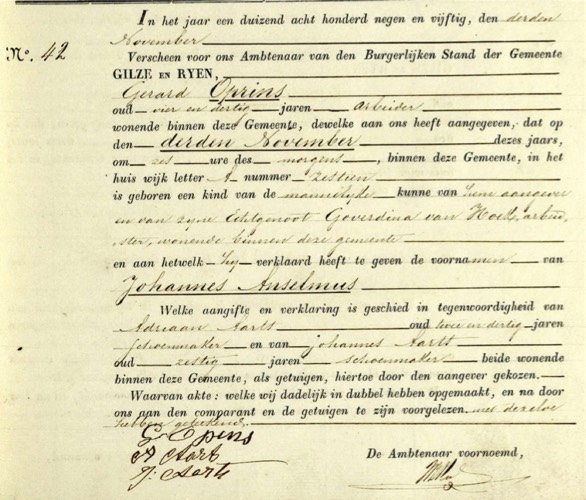 In het jaar een duizend acht honderd negen en vijftig, den derden
November
N.º 42
Verscheen voor ons Ambtenaar van den Burgerlijken Stand der Gemeente
GILZE EN RYEN,
Gerard Oprins
oud vier en dertig jaren arbeider
wonende binnen deze Gemeente, dewelke aan ons heeft aangegeven, dat op
den derden November dezes jaars,
om zes ure des morgens, binnen deze Gemeente, in het
huis wijk letter A nummer zestien
is geboren een kind van de mannelyke kunne van hem aangever
en van zyne Echtgenoot Goverdina van Hoek, arbeid
ster, wonende binnen deze gemeente
en aan hetwelk hy verklaard heeft te geven de voornamen van
Johannes Anselmus
Welke aangifte en verklaring is geschied in tegenwoordigheid van
Adriaan Aarts oud twee en dertig jaren
schoenmaker en van Johannes Aarts
oud zestig jaren schoenmaker beide wonende
binnen deze Gemeente, als getuigen, hiertoe door den aangever gekozen.
Waarvan akte: welke wij dadelijk in dubbel hebben opgemaakt, en na door
ons aan den comparant en de getuigen te zijn voorgelezen met dezelve
hebben geteekend.
G Opens
A Aart
J: Aarts
De Ambtenaar voornoemd,